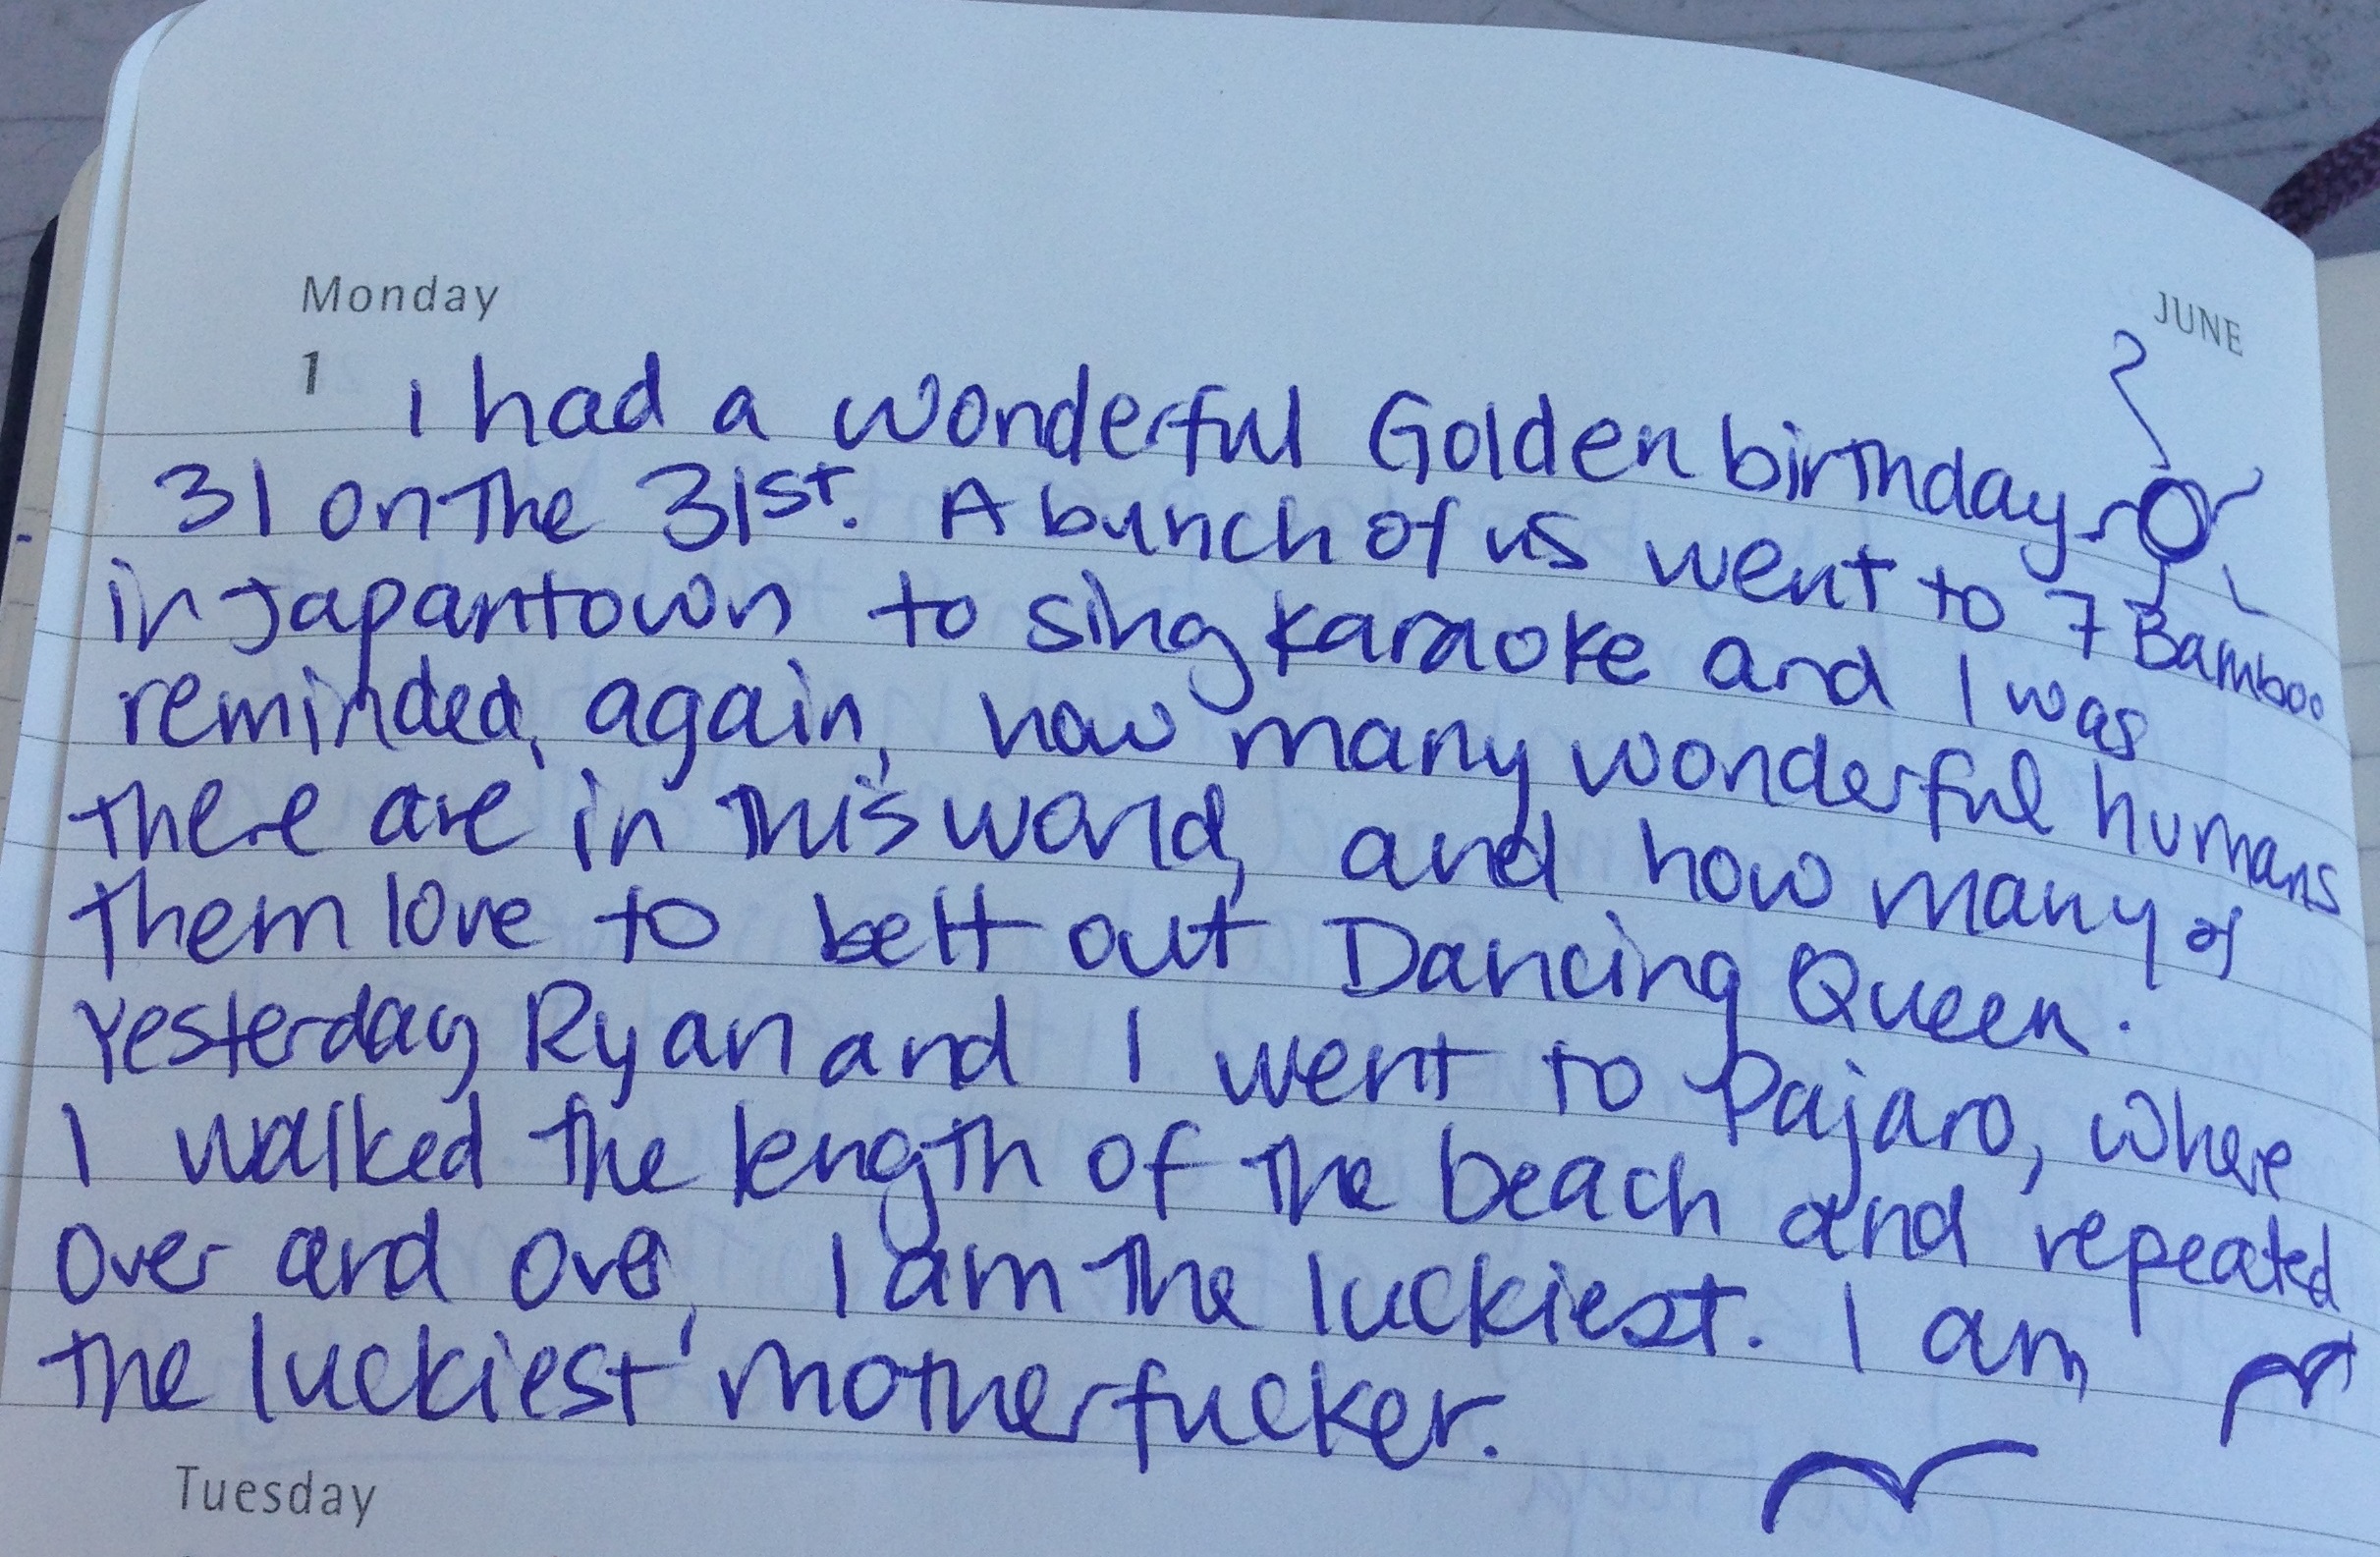 Monday
JUNE
1
I had a wonderful Golden birthday
31 on the 31st. A bunch of us went to 7 Bamboo
in Japantown to sing karaoke and I was
reminded, again, how many wonderful humans
there are in this world, and how many of
them love to belt out Dancing Queen.
Yesterday Ryan and I went to Pajaro, where
I walked the length of the beach and repeated
over and over, I am the luckiest. I am
the luckiest motherfucker.
Tuesday